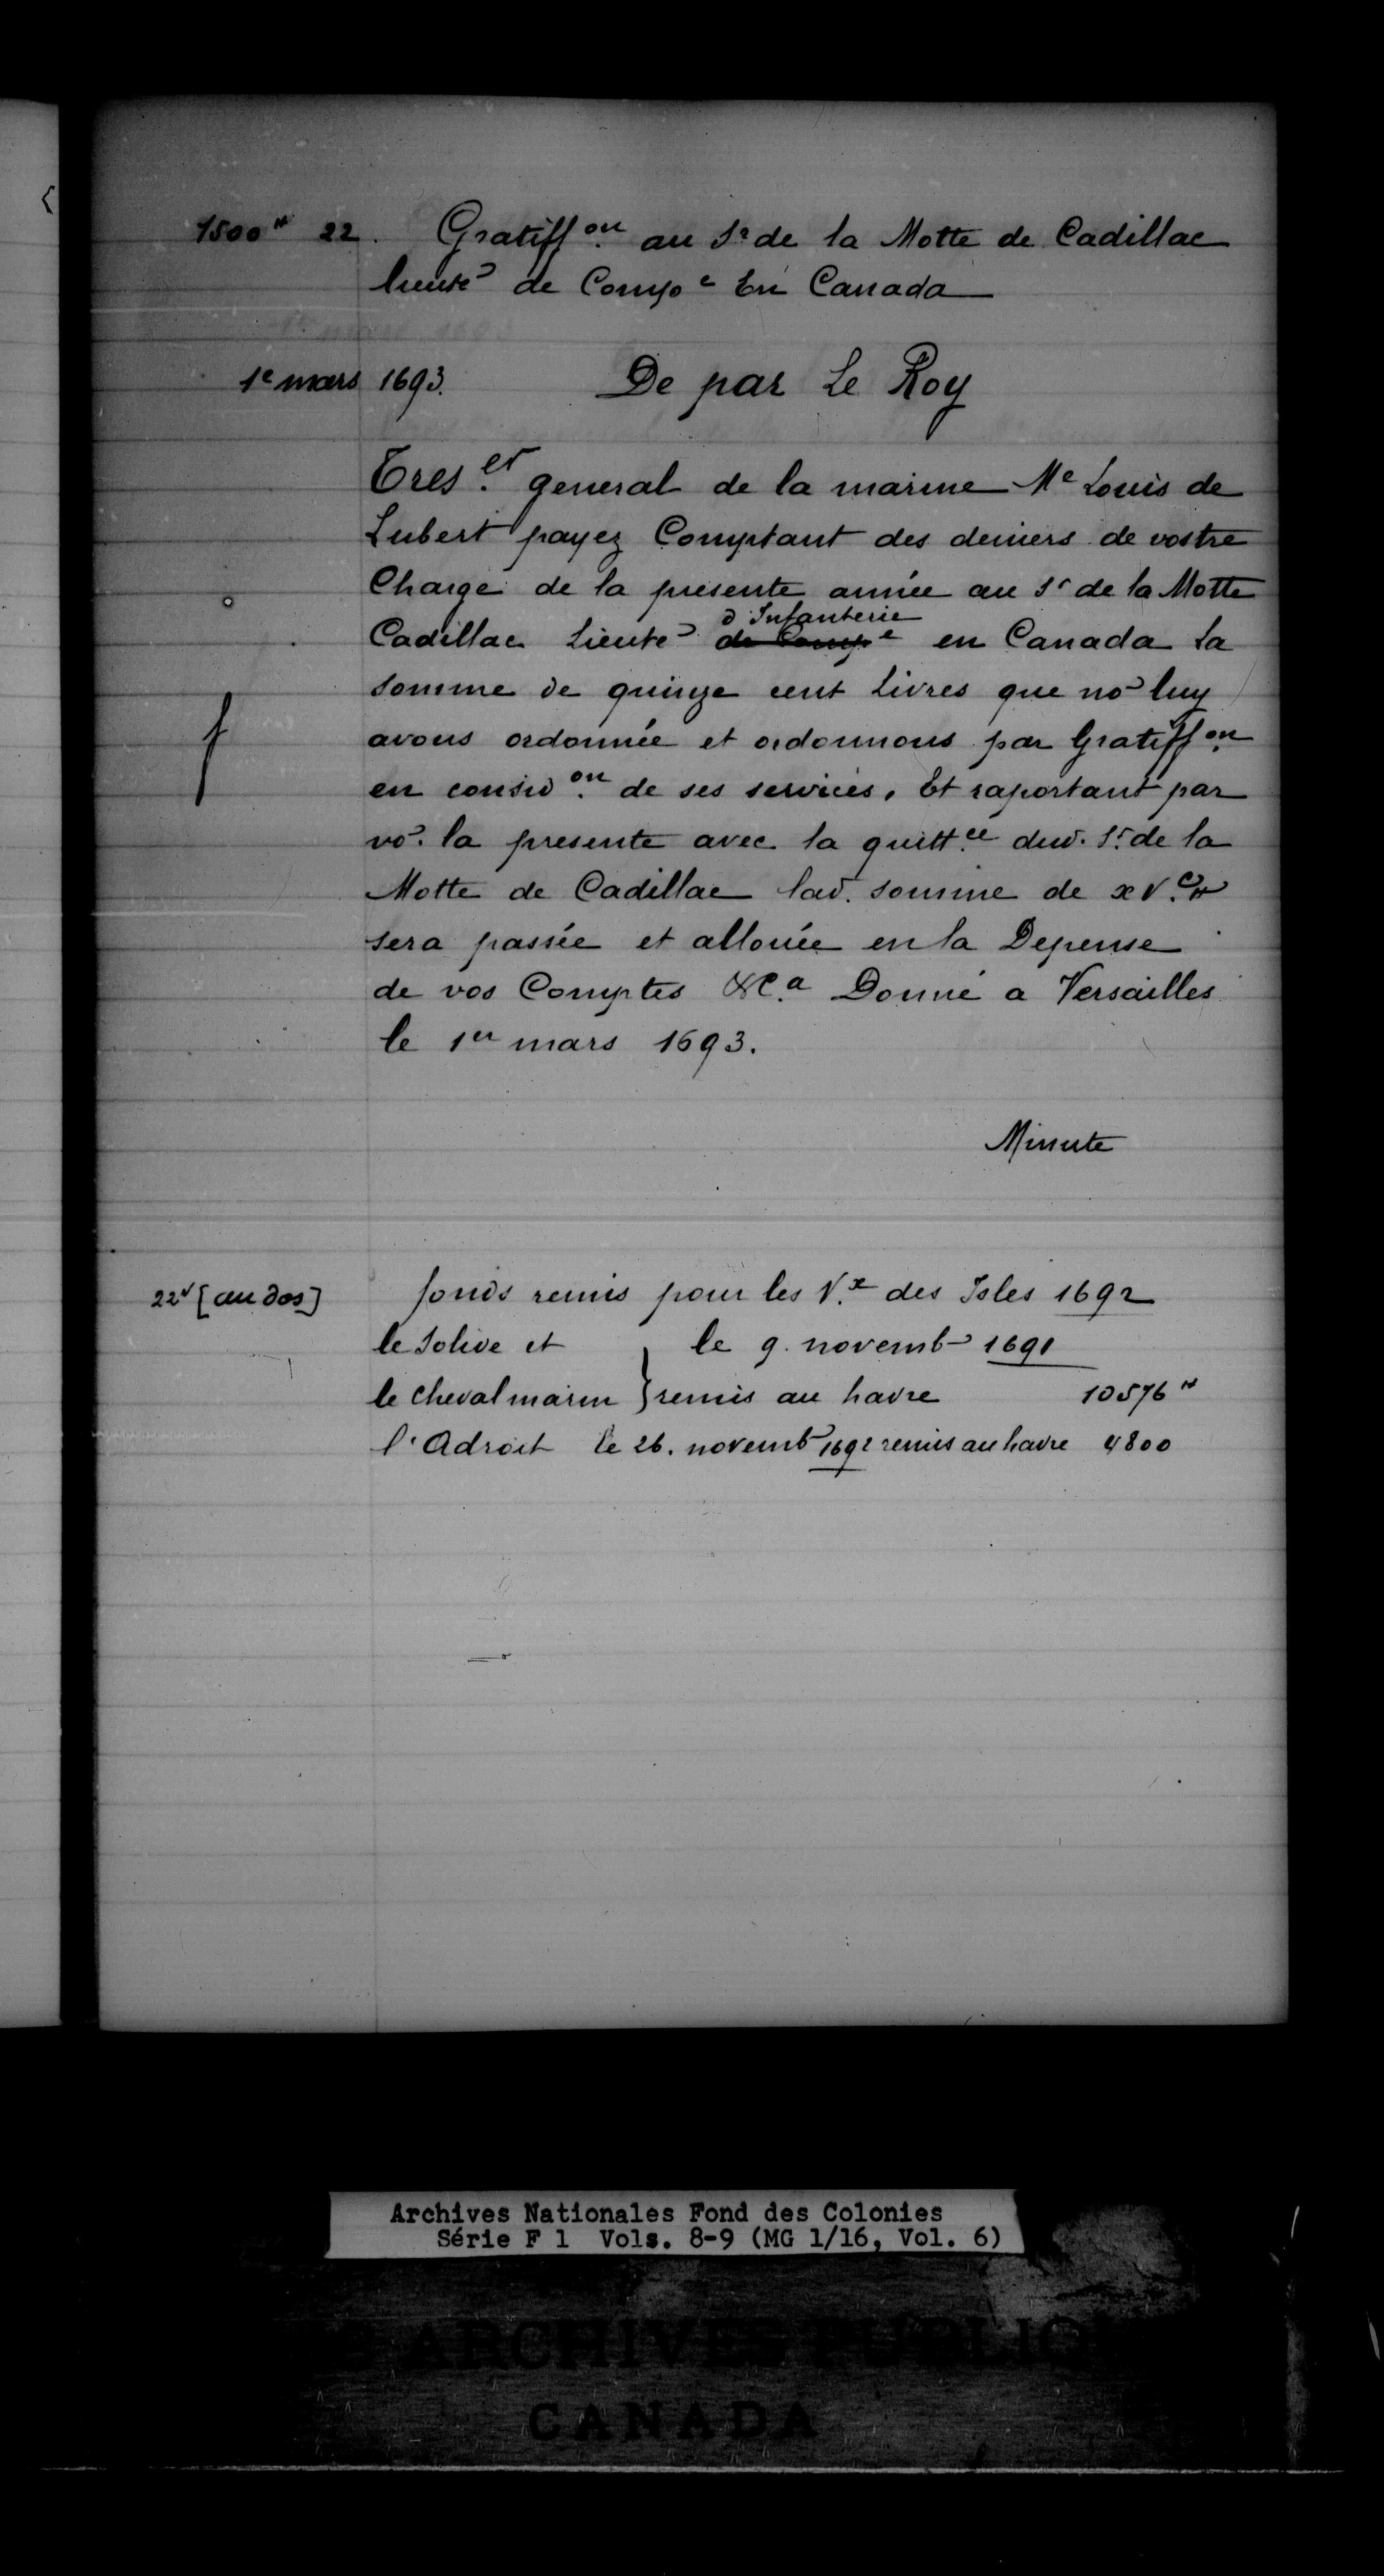 1500ᵗᵗ 22. Gratiff.on au Sr de la Motte de Cadillac
lieut⁾ de Compe En Canada
1e mars 1693. De par Le Roy
Tres.er general de la marine Me Louis de
Lubert payez Comptant des deniers de vostre
Charge de la presente année au Sr de la Motte
d'Infanterie
Cadillac Lieut⁾ de Compe en Canada La
somme de quinze cent Livres que no⁾ luy
avons ordonnée et ordonnons par Gratiff.on
en consid.on de ses services, Et raportant par
vo⁾. la presente avec la quitt.ce dud. Sr. de la
Motte de Cadillac lad. somme de xv.cᵗᵗ
sera passée et allouée en la Depense
de vos Comptes &c.a Donné a Versailles
le 1er mars 1693.
Minute
22v [au dos] fonds remis pour les V.x des Isles 1692
le Solide et } le 9. novemb⁾ 1691
le cheval marin } remis au havre 10576ᵗᵗ
l'Adroit le 26. novemb⁾ 1692 remis au havre 4800
Archives Nationales Fond des Colonies
Série F 1 Vols. 8-9 (MG 1/16, Vol. 6)
ARCHIVES PUBLIQ
CANADA